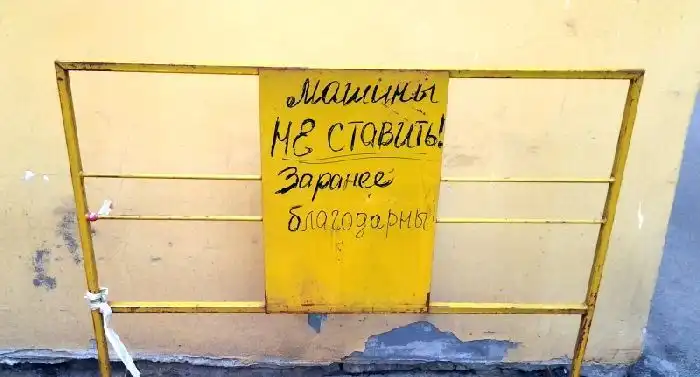 Машины
НЕ СТАВИТЬ!
Заранее
благодарны